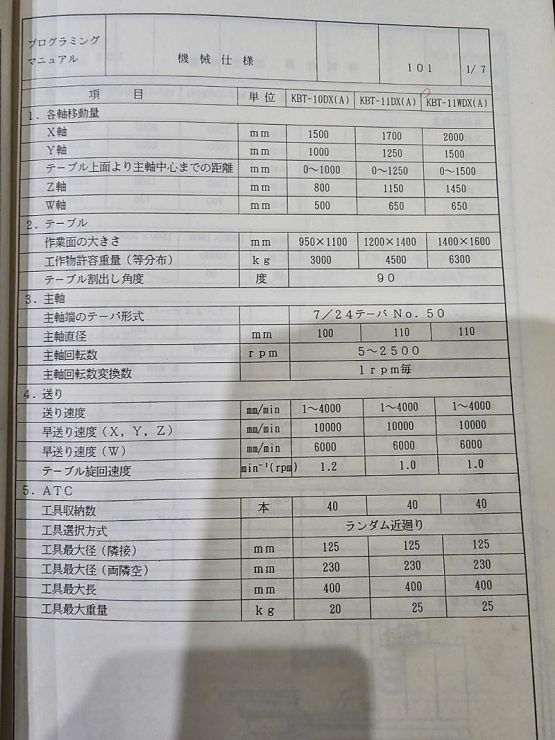 プログラミング
マニュアル
機械仕様
101
1/7
項目 単位 KBT-10DX(A) KBT-11DX(A) KBT-11WDX(A)
1．各軸移動量
X軸 mm 1500 1700 2000
Y軸 mm 1000 1250 1500
テーブル上面より主軸中心までの距離 mm 0～1000 0～1250 0～1500
Z軸 mm 800 1150 1450
W軸 mm 500 650 650
2．テーブル
作業面の大きさ mm 950×1100 1200×1400 1400×1600
工作物許容重量（等分布） kg 3000 4500 6300
テーブル割出し角度 度 90
3．主軸
主軸端のテーパ形式 7／24テーパ No.50
主軸直径 mm 100 110 110
主軸回転数 rpm 5～2500
主軸回転数変換数 1rpm毎
4．送り
送り速度 mm/min 1～4000 1～4000 1～4000
早送り速度（X，Y，Z） mm/min 10000 10000 10000
早送り速度（W） mm/min 6000 6000 6000
テーブル旋回速度 min⁻¹(rpm) 1.2 1.0 1.0
5．ATC
工具収納数 本 40 40 40
工具選択方式 ランダム近廻り
工具最大径（隣接） mm 125 125 125
工具最大径（両隣空） mm 230 230 230
工具最大長 mm 400 400 400
工具最大重量 kg 20 25 25